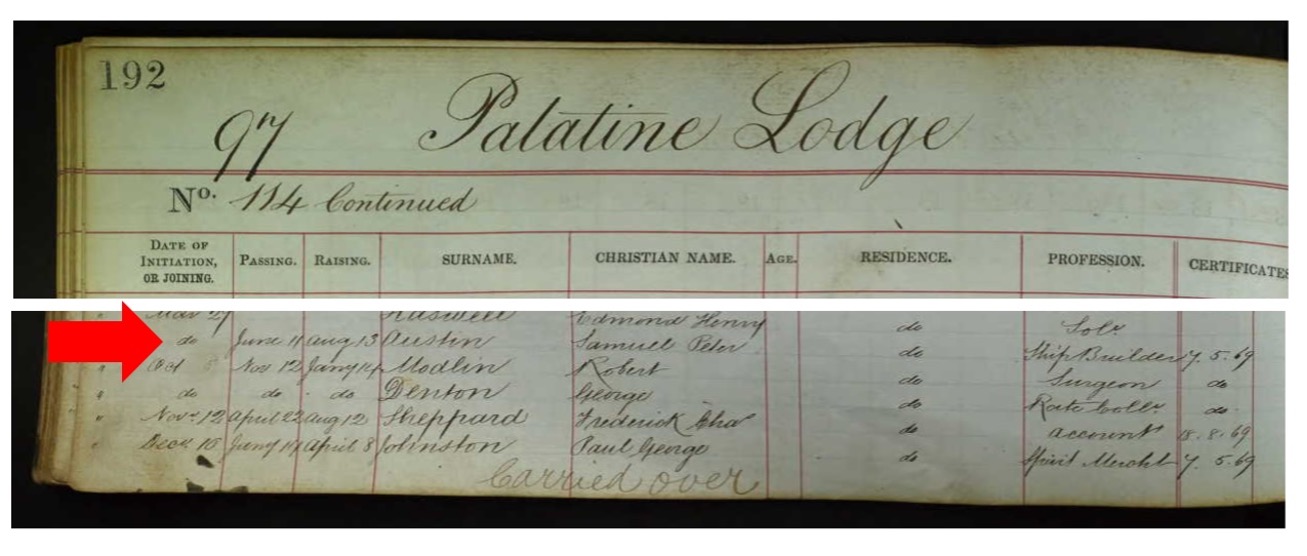 192
97 Palatine Lodge
No. 114 Continued
DATE OF INITIATION, OR JOINING. PASSING. RAISING. SURNAME. CHRISTIAN NAME. AGE. RESIDENCE. PROFESSION. CERTIFICATES
" Edmond Henry do Solr
" do June 11 Aug 13 Austin Samuel Peter do Ship Builder 7.5.69
" Oct Nov 12 Jany 14 Modlin Robert do Surgeon do
" do do do Denton George do Rate Collr do
" Novr 12 April 22 Aug 12 Sheppard Frederick Chas do Accountt 18.8.69
" Decr 10 Jany 14 April 8 Johnston Paul George do Spirit Mercht 7.5.69
Carried over